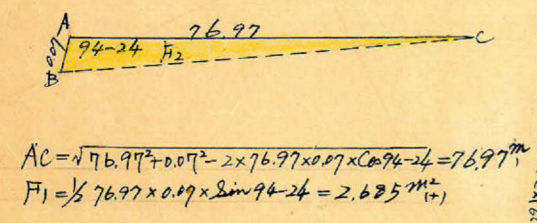 A
76.97
C
0.07
94-24
F2
B
AC=√76.97²+0.07²-2×76.97×0.07×Cos94-24=76.97m
F1=½ 76.97×0.07×Sin94-24=2.685m²(+)